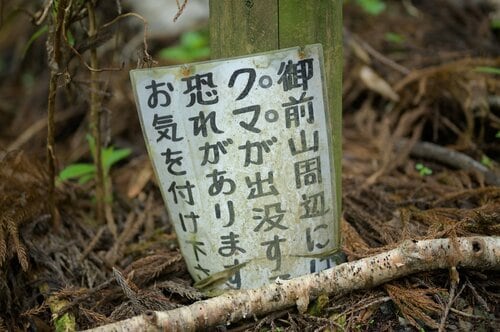 御前山周辺には
クマが出没す
恐れがあります
お気を付け下さ